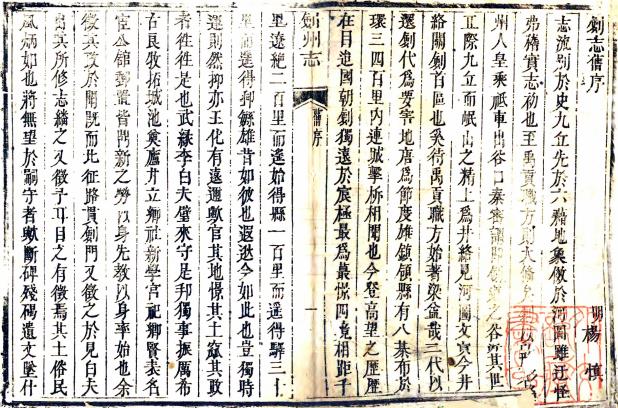 劍志舊序
明 楊 慎
志流別於史九丘先於六籍地奠倣於河圖雖迂怪
弗稽實志初也至禹貢職方則大備矣
州人皇乘祗車出谷口秦宓謂即劍閣之谷其世
正際九丘而岷山之精上為井絡見河圖文真今井
絡關劍首區也奚待禹貢職方始著梁益哉三代以
還劍代為要害地唐為節度雄鎮領縣有八棊布於
環三四百里內連城擊柝相聞也今登高望之歷歷
在目迨國朝劍獨遠於宸極最為巖憬四竟相距千
劍州志
舊序
一
里遼絕二百里而遙始得縣一百里而遙得驛三十
里而遙得抑鯀雄昔如彼也遐逖今如此也豈獨時
運則然抑亦王化有遠邇歟官其地憬其土竄其政
者往往是也武祿李白夫璧來守是邦獨事振厲希
古良牧拓城池奠廬井立鄉社新學宮祀鄉賢表名
宦公館郵置皆鬥新之勞以身先教以身率始也余
徵其政於聞既而北征將貫劍門又徵之於見白夫
出其所修志繙之又徵予耳目之有徵焉其土俗民
風炳如也將無望於嗣守者歟斷碑殘碣遺文墜什